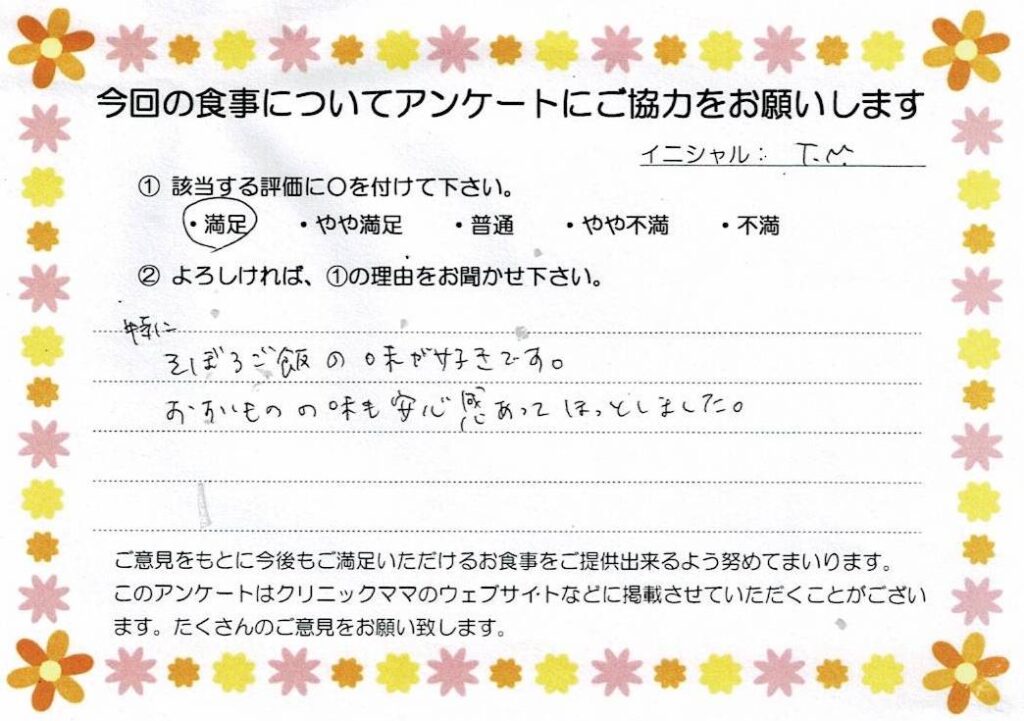 今回の食事についてアンケートにご協力をお願いします
イニシャル： T.M.
① 該当する評価に〇を付けて下さい。
・満足 ・やや満足 ・普通 ・やや不満 ・不満
② よろしければ、①の理由をお聞かせ下さい。
特に
そぼろご飯の味が好きです。
おかいものの味も安心感あってほっとしました。
ご意見をもとに今後もご満足いただけるお食事をご提供出来るよう努めてまいります。
このアンケートはクリニックママのウェブサイトなどに掲載させていただくことがござい
ます。たくさんのご意見をお願い致します。